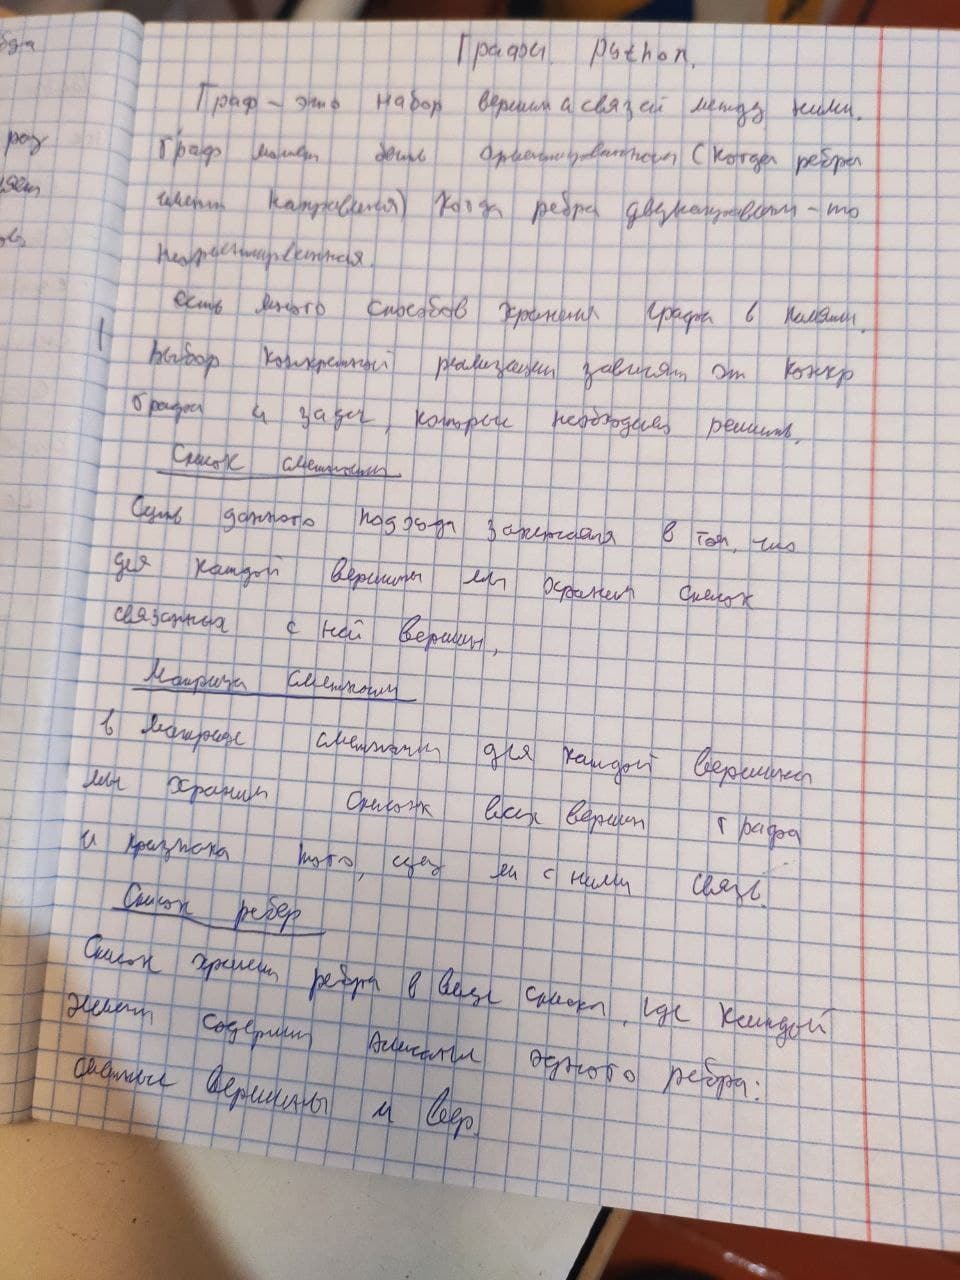 Графы. Python.
Граф - это набор вершин и связей между ними.
Граф может быть ориентированным (когда ребра
имеют направления) Когда ребра двунаправлен - то
есть много способов хранения графа в памяти.
Выбор конкретной реализации зависит от конкр
графа и задач, которые необходимо решить.
Список смежности
Суть данного подхода заключается в том, что
для каждой вершины мы храним список
связанных с ней вершин,
Матрица смежности
в матрице смежности для каждой вершины
мы храним список всех вершин графа
и признака того, ли с ними связь.
Список ребер
Список хранит ребра в виде списка, где каждый
элемент содержит одного ребра:
смежные вершины и вер.